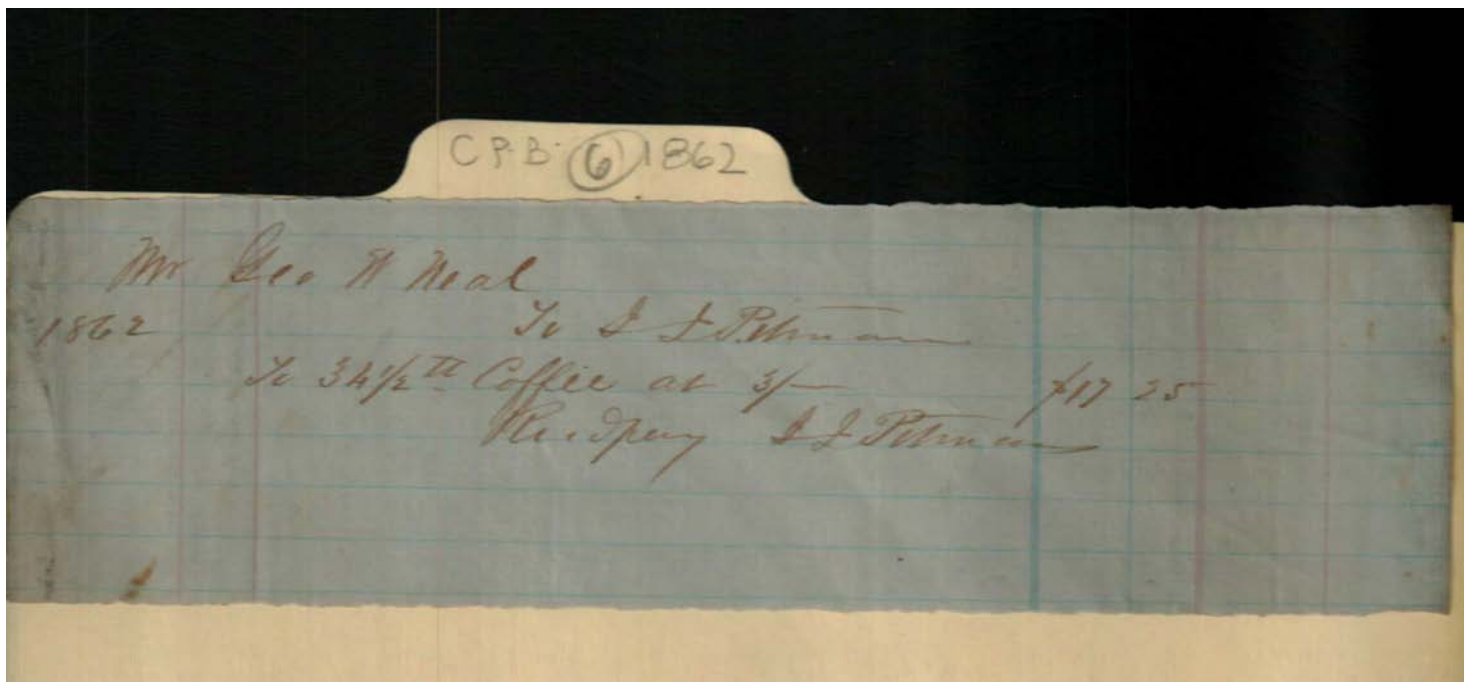 C.P.B. 6 1862
Mr Geo W Neal
1862 To J J Pitman
To 34 1/2 lb Coffee at 3/— $17 25
Recd pay J J Pitman